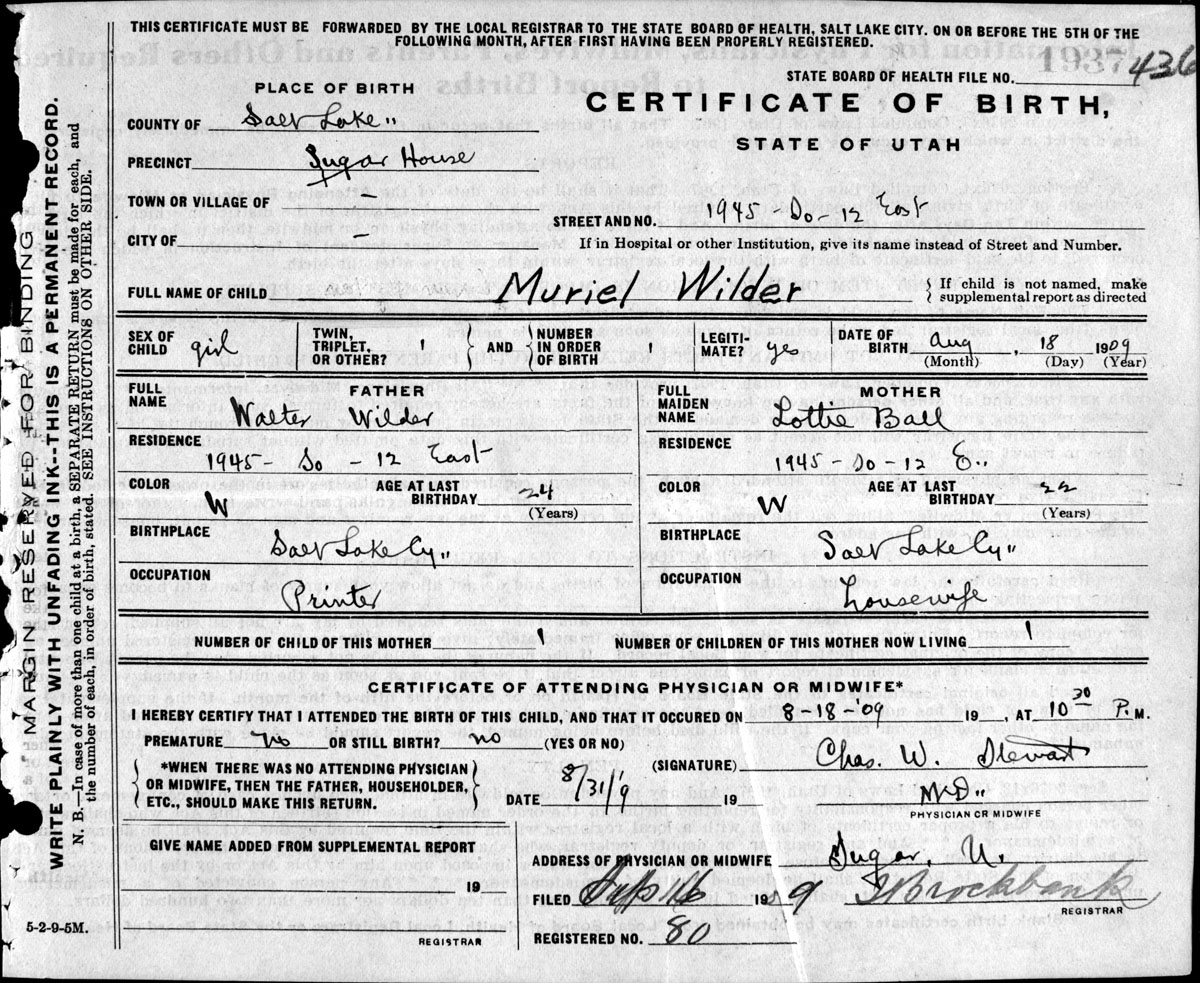 THIS CERTIFICATE MUST BE FORWARDED BY THE LOCAL REGISTRAR TO THE STATE BOARD OF HEALTH, SALT LAKE CITY. ON OR BEFORE THE 5TH OF THE
FOLLOWING MONTH, AFTER FIRST HAVING BEEN PROPERLY REGISTERED.
STATE BOARD OF HEALTH FILE NO. 436
PLACE OF BIRTH
CERTIFICATE OF BIRTH,
STATE OF UTAH
COUNTY OF Salt Lake
PRECINCT Sugar House
TOWN OR VILLAGE OF -
STREET AND NO. 1945 So-12 East
CITY OF
If in Hospital or other Institution, give its name instead of Street and Number.
FULL NAME OF CHILD Muriel Wilder { If child is not named, make
supplemental report as directed
SEX OF CHILD girl TWIN, TRIPLET, OR OTHER? 1 } AND { NUMBER IN ORDER OF BIRTH 1 LEGITI-MATE? yes DATE OF BIRTH Aug, 18 1909
(Month) (Day) (Year)
FATHER
FULL NAME Walter Wilder
RESIDENCE
1945- So - 12 East
COLOR W AGE AT LAST BIRTHDAY 24
(Years)
BIRTHPLACE
Salt Lake Cy"
OCCUPATION
Printer
MOTHER
FULL MAIDEN NAME Lottie Ball
RESIDENCE
1945 - So - 12 E..
COLOR W AGE AT LAST BIRTHDAY 22
(Years)
BIRTHPLACE
Salt Lake Cy"
OCCUPATION
housewife
NUMBER OF CHILD OF THIS MOTHER 1 NUMBER OF CHILDREN OF THIS MOTHER NOW LIVING 1
CERTIFICATE OF ATTENDING PHYSICIAN OR MIDWIFE*
I HEREBY CERTIFY THAT I ATTENDED THE BIRTH OF THIS CHILD, AND THAT IT OCCURED ON 8-18-'09 19 , AT 10 30 P. M.
PREMATURE No OR STILL BIRTH? no (YES OR NO)
{ *WHEN THERE WAS NO ATTENDING PHYSICIAN
OR MIDWIFE, THEN THE FATHER, HOUSEHOLDER,
ETC., SHOULD MAKE THIS RETURN. }
(SIGNATURE) Chas. W. Stewart
DATE 8/31/9 19 M.D.
PHYSICIAN OR MIDWIFE
GIVE NAME ADDED FROM SUPPLEMENTAL REPORT
19
REGISTRAR
ADDRESS OF PHYSICIAN OR MIDWIFE Sugar, U.
FILED 16 1909 Brockbank
REGISTRAR
REGISTERED NO. 80
5-2-9-5M.
MARGIN RESERVED FOR BINDING
WRITE PLAINLY WITH UNFADING INK--THIS IS A PERMANENT RECORD.
N. B.—In case of more than one child at a birth, a SEPARATE RETURN must be made for each, and
the number of each, in order of birth, stated. SEE INSTRUCTIONS ON OTHER SIDE.